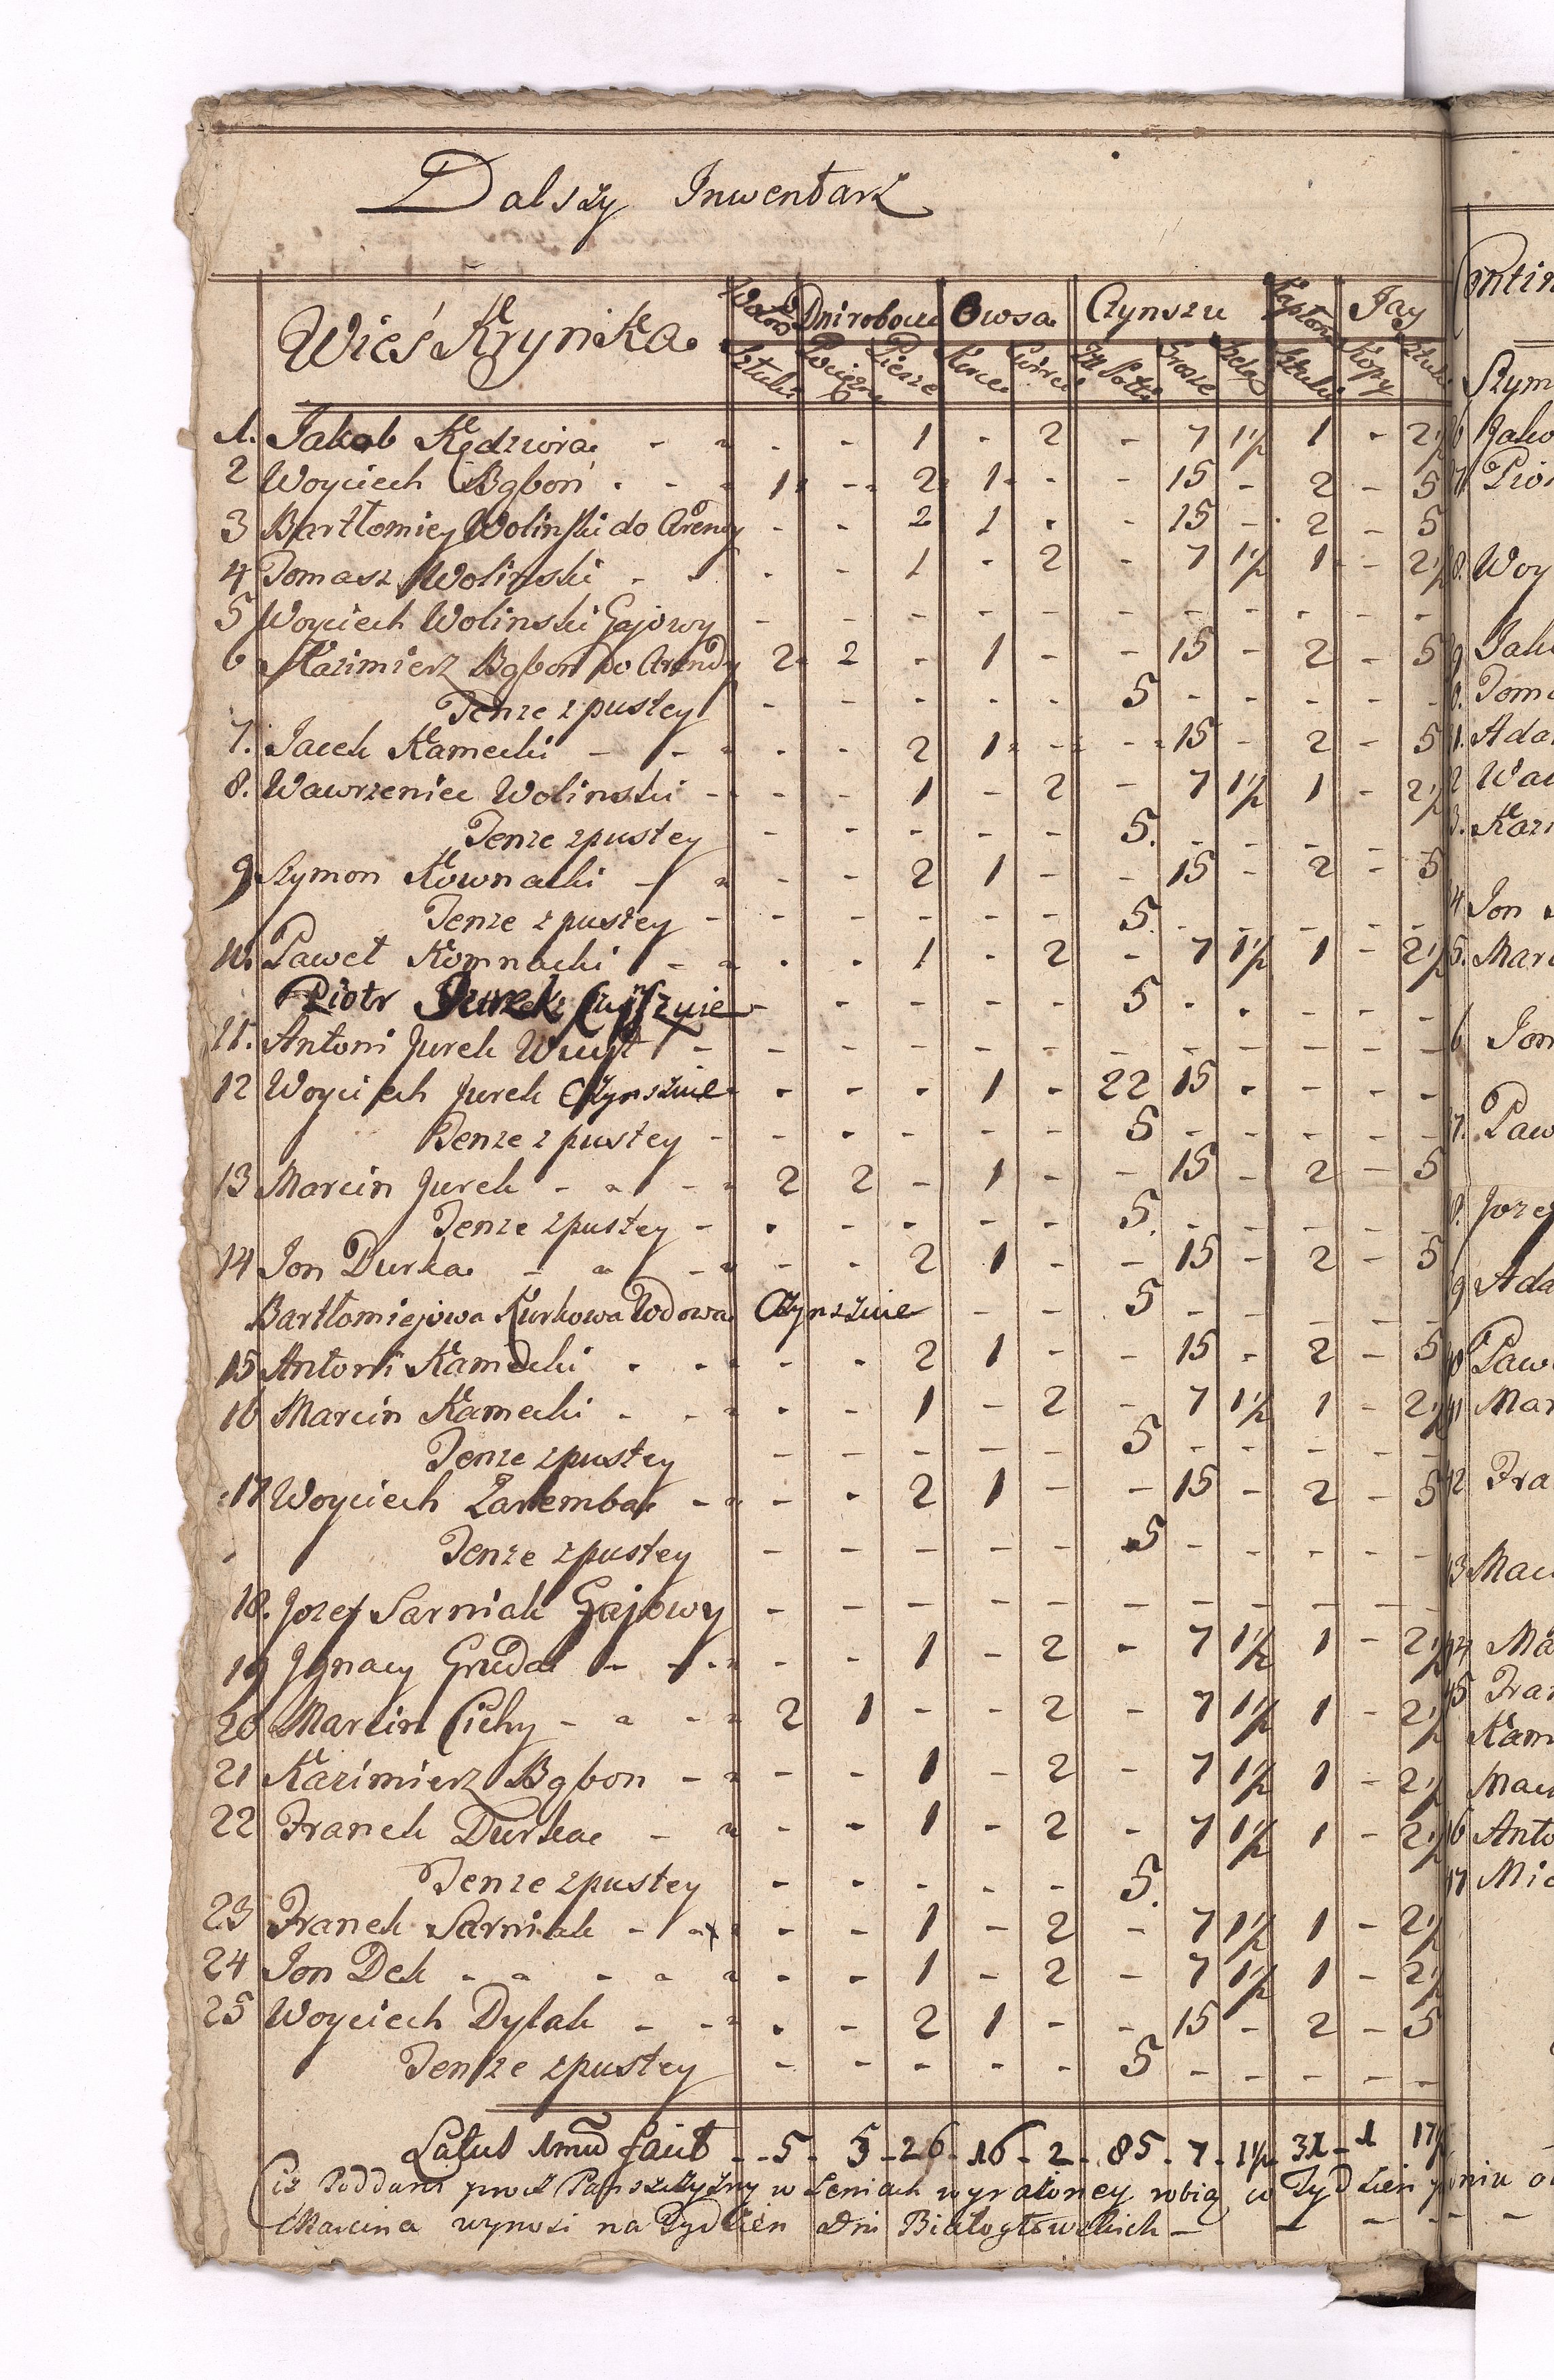 Dalszy Inwentarz
Wieś Krynka Dni robocze Owsa Czynszu Jay
Sztuki Piesze Korce Złote Grosze Szeląg Sztuki Kopy Sztuki
1. Jakob Kędziora - - - - 1 - 2 - 7 1½ 1 - 2½
2 Woyciech Bąbon - - - 1 - 2 1 - - 15 - 2 - 5
3 Bartłomiey Wolinski do Arendy - - 2 1 - - 15 - 2 - 5
4 Tomasz Wolinski - - - - 1 - 2 - 7 1½ 1 - 2½
5 Woyciech Wolinski Gajowy - - - - - - - - - - -
6 Kazimierz Bąbon do Arendy 2 2 - 1 - - 15 - 2 - 5
Tenze z pustey - - - - - 5 - - - - -
7. Jacek Kamecki - - - - - 2 1 - - 15 - 2 - 5
8. Wawrzeniec Wolinski - - - - 1 - 2 - 7 1½ 1 - 2½
Tenze z pustey - - - - - 5. - - - - -
9 Szymon Kownacki - - - - 2 1 - - 15 - 2 - 5
Tenze z pustey - - - - - - 5. - - - - -
10. Paweł Kownacki - - - - 1 - 2 - 7 1½ 1 - 2½
Piotr Jurek Czynszuie - - - - - 5 - - - - -
11. Antoni Jurek Wuyt - - - - - - - - - - - -
12 Woyciech Jurek Czynszuie - - - 1 - 22 15 - - - -
Tenze z pustey - - - - - - 5 - - - - -
13 Marcin Jurek - - - - 2 2 - 1 - - 15 - 2 - 5
Tenze z pustey - - - - - - 5. - - - - -
14 Jon Durka - - - - - - 2 1 - - 15 - 2 - 5
Bartłomiejowa Kurkowa Wdowa Czynszuie - - 5 - - - - -
15 Antoni Kamecki - - - - - 2 1 - - 15 - 2 - 5
16 Marcin Kamecki - - - - - 1 - 2 - 7 1½ 1 - 2½
Tenze z pustey - - - - - 5 - - - - -
17 Woyciech Zaremba - - - - 2 1 - - 15 - 2 - 5
Tenze z pustey - - - - - 5 - - - - -
18. Jozef Sarniak Gajowy - - - - - - - - - - -
19 Jgnacy Gruda - - - - - 1 - 2 - 7 1½ 1 - 2½
20 Marcin Cichy - - - - 2 1 - - 2 - 7 1½ 1 - 2½
21 Kazimierz Bąbon - - - - 1 - 2 - 7 1½ 1 - 2½
22 Franek Durka - - - - 1 - 2 - 7 1½ 1 - 2½
Tenze z pustey - - - - - 5.
23 Franek Sarniak - - - - 1 - 2 - 7 1½ 1 - 2½
24 Jon Dek - - - - - - - 1 - 2 - 7 1½ 1 - 2½
25 Woyciech Dylak - - - - 2 1 - - 15 - 2 - 5
Tenze z pustey - - - - - 5 - - - - -
Latus 1mũ facit - 5 - 5 - 26 - 16 - 2 - 85 - 7 - 1½ 31 - 1 17½
Ciż Poddani procz Panszczyzny w Leniach wyrażoney robią w Tydzień
Marcina wynosi na Tydzień Dni Białogłowskich - - - -
Szym
Jako
Woy
Jak
Tom
Ada
Waw
Kazi
Jon
Marc
Jon
Paw
Jozef
Ada
Paw
Mar
Fra
Mac
Ma
Fran
Kam
Mac
Anto
Mic